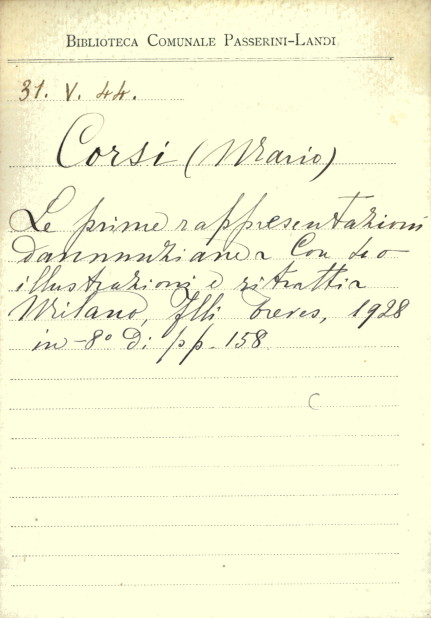 BIBLIOTECA COMUNALE PASSERINI-LANDI
31. V. 44.
Corsi (Mario)
Le prime rappresentazioni
dannunziane Con
illustrazioni e ritratti
Milano, Flli Treves, 1928
in-8° di pp. 158